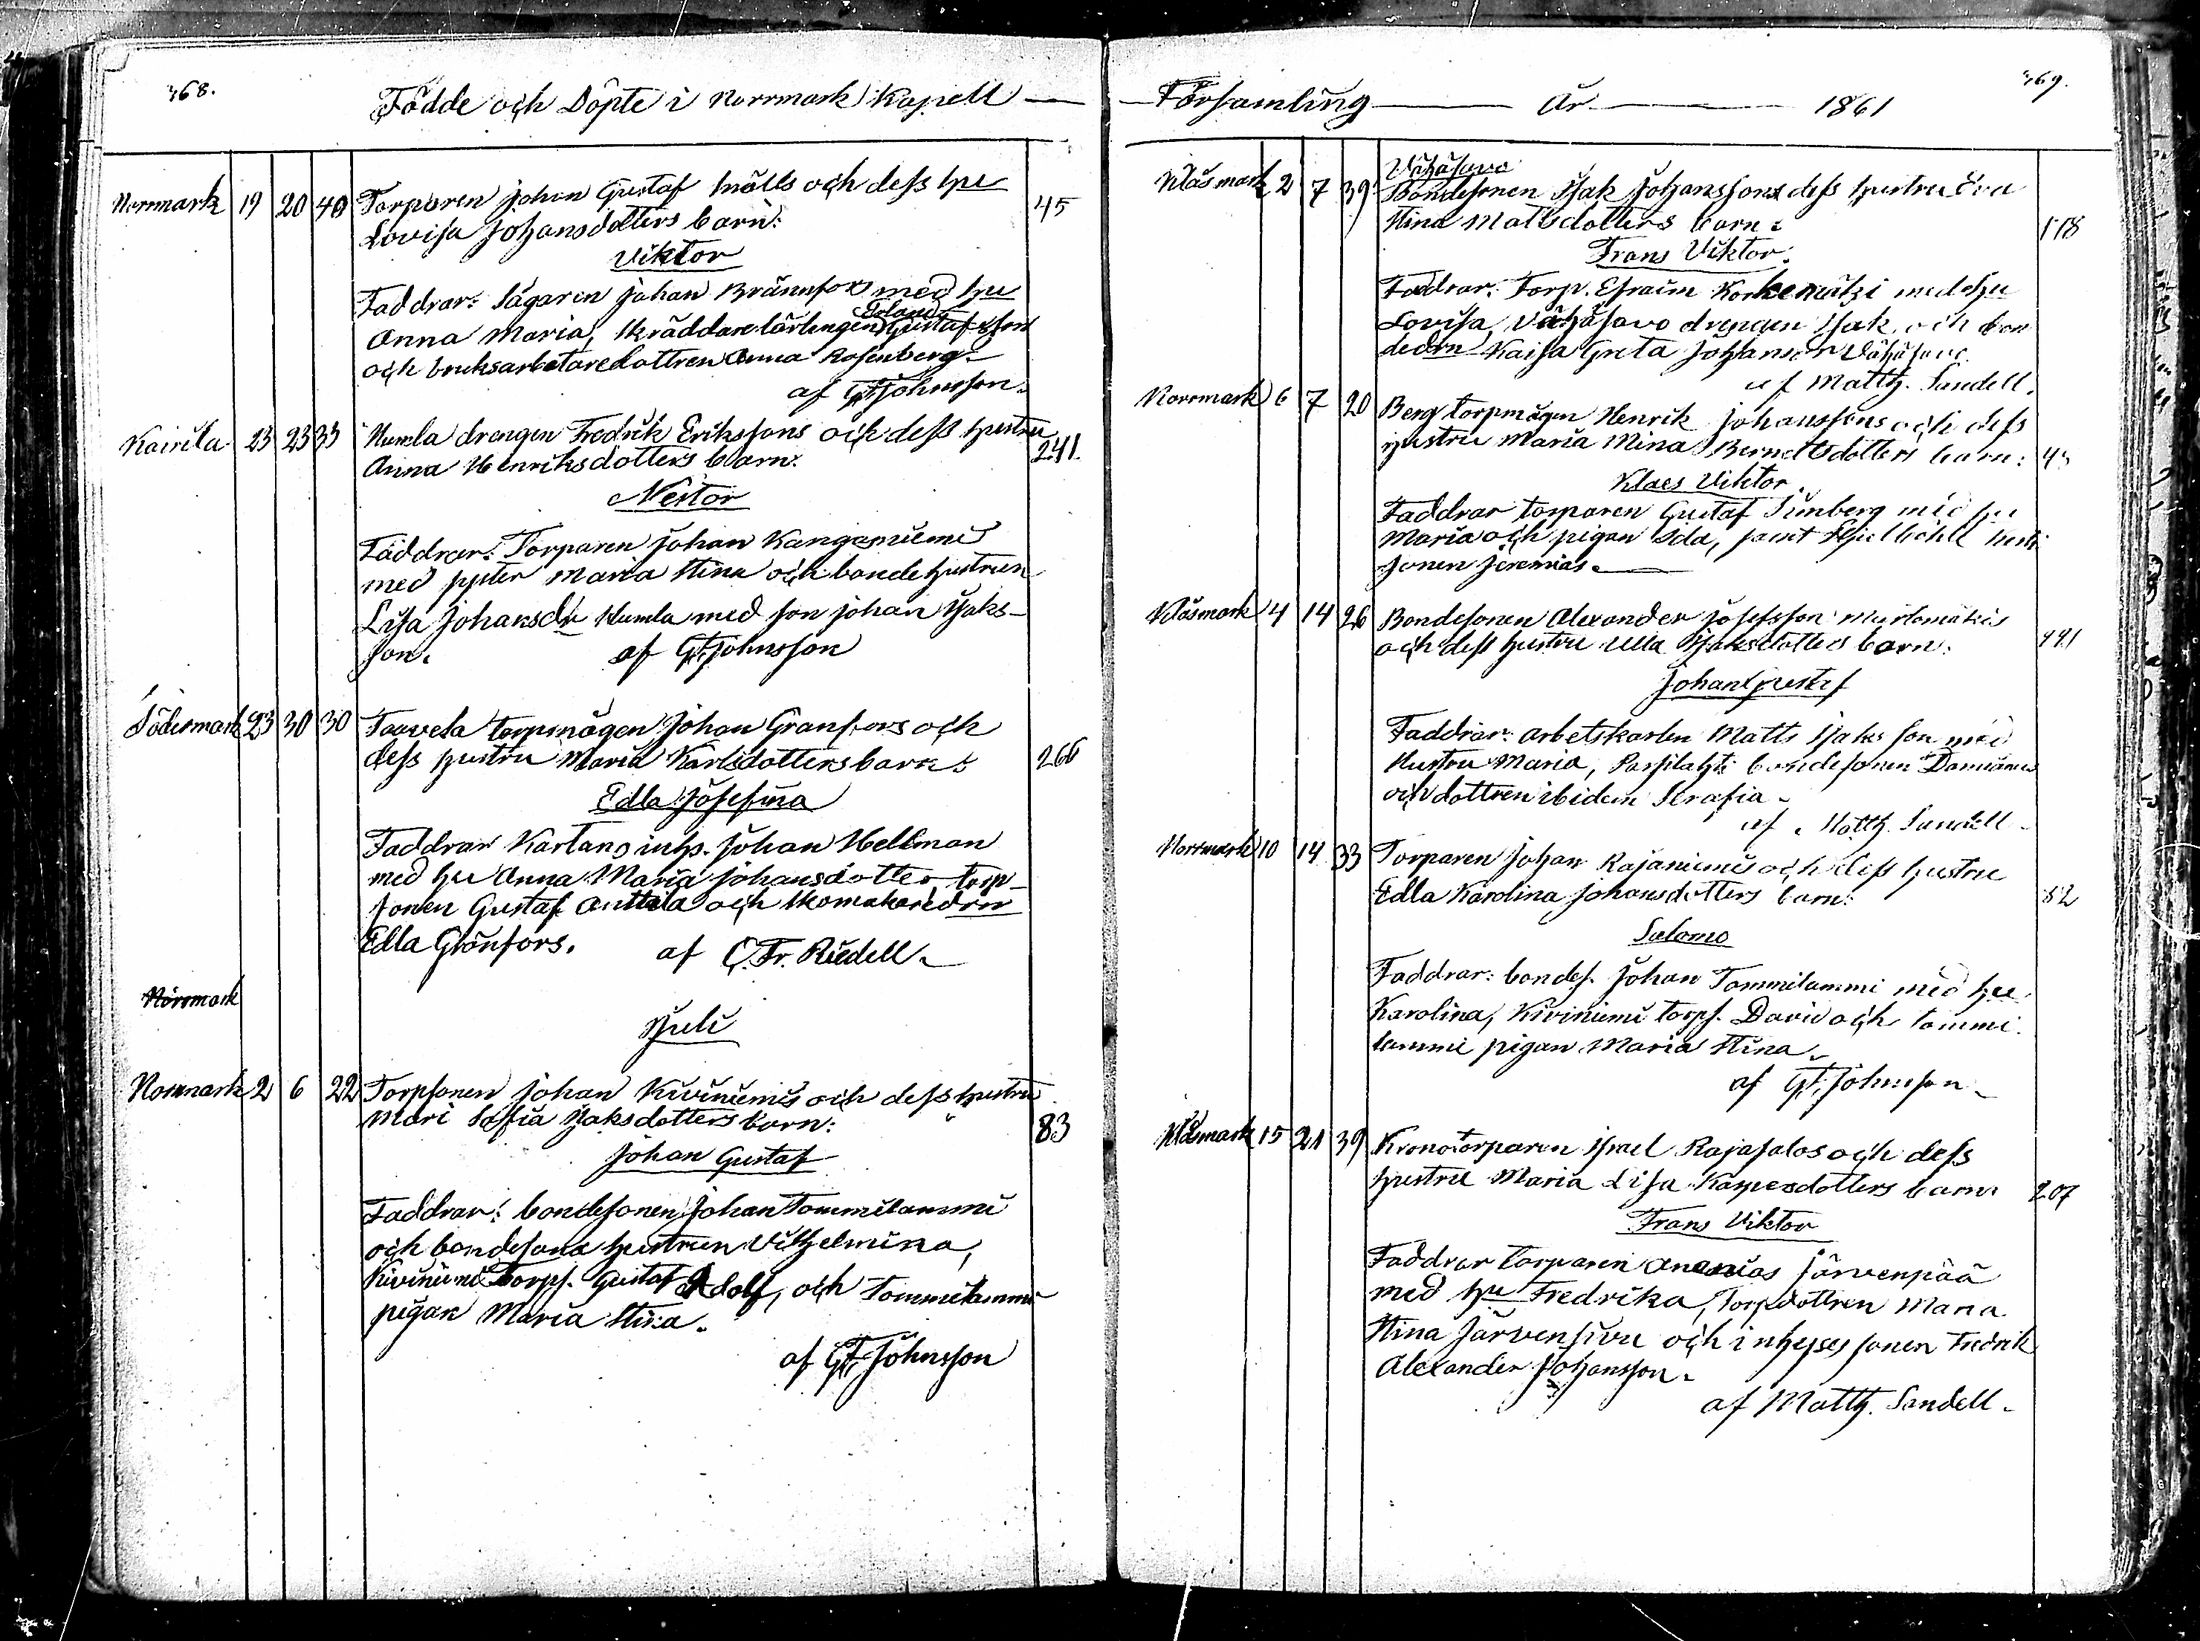 368.
Födde och Döpte i Norrmark Kapell
Norrmark 19 20 40 Torparen Johan Gustaf Mälls och dess hu 45
Lovisa Johansdotters barn:
Viktor
Faddrar: Sågaren Johan Brännfors med hu
Anna Maria, Skräddarelärlingen Gustaf
och bruksarbetaredottren Anna Rosenberg.
af G F Johnsson.
Kairila 23 23 33 Humla drengen Fredrik Erikssons och dess hustru 241.
Anna Henriksdotters barn:
Nestor
Faddrar: Torparen Johan Kangasniemi
med syster Maria Stina och bondehustrun
Lisa Johansdr Humla med son Johan Isaks-
son. af G F Johnsson
Södermark 23 30 30 Taavela torpmågen Johan Granfors och
dess hustru Maria Karlsdotters barn: 266
Edla Josefina
Faddrar Kartano inhs. Johan Hellman
med hu Anna Maria Johansdotter, torp-
sonen Gustaf Anttila och skomakaredrn
Edla Grönfors. af C. Fr. Riedell.
Norrmark
Juli
Norrmark 2 6 22 Torpsonen Johan Kiviniemis och dess hustru
Mari Sofia Isaksdotters barn: 83
Johan Gustaf
Faddrar: bondesonen Johan Tommilammi
och bondesona hustrun Vilhelmina,
Kiviniemi Torps. Gustaf Adolf, och Tommilammi
pigan Maria Stina.
af G F Johnsson
369.
Församling År 1861
Vähäsavo
Klåsmark 2 7 39 Bondesonen Isak Johanssons dess hustru Eva
Stina Mattsdotters barn: 118
Frans Viktor.
Faddrar: Torp. Efraim Korkemäki med hu
Lovisa, Vähäsavo drengen Isak och bon
dedrn Kaisa Greta Johansdr Vähäsavo.
af Matth. Sandell.
Norrmark 6 7 20 Berg torpmågen Henrik Johanssons och dess
hustru Maria Mina Berndtsdotters barn:
Klaes Viktor.
Faddrar torparen Gustaf Simberg med hu
Maria och pigan Ida, samt
sonen Jeremias.
Klåsmark 4 14 26 Bondesonen Alexander Josefsson
och dess hustru Ulla Isaksdotters barn:
Johan Gustaf
Faddrar: arbetskarlen Matts Isaksson med
Hustru Maria, bondesonen
och dottren ibidem Serafia.
af Matth. Sandell.
Norrmark 10 14 33 Torparen Johan Rajaniemis och dess hustru
Edla Karolina Johansdotters barn: 82
Salomo
Faddrar: bondes. Johan Tommilammi med hu
Karolina, Kiviniemi torps. David och tommi
lammi pigan Maria Stina.
af G F Johnsson.
Klåsmark 15 21 39 Kronotorparen Israel Rajasalos och dess
hustru Maria Lisa Kaspersdotters barn: 207
Frans Viktor
Faddrar torparen Ananias Järvenpää
med hu Fredrika, Torpdottren Maria
Stina Järvensivu och inhyses sonen Fredrik
Alexander Johansson.
af Matth. Sandell.